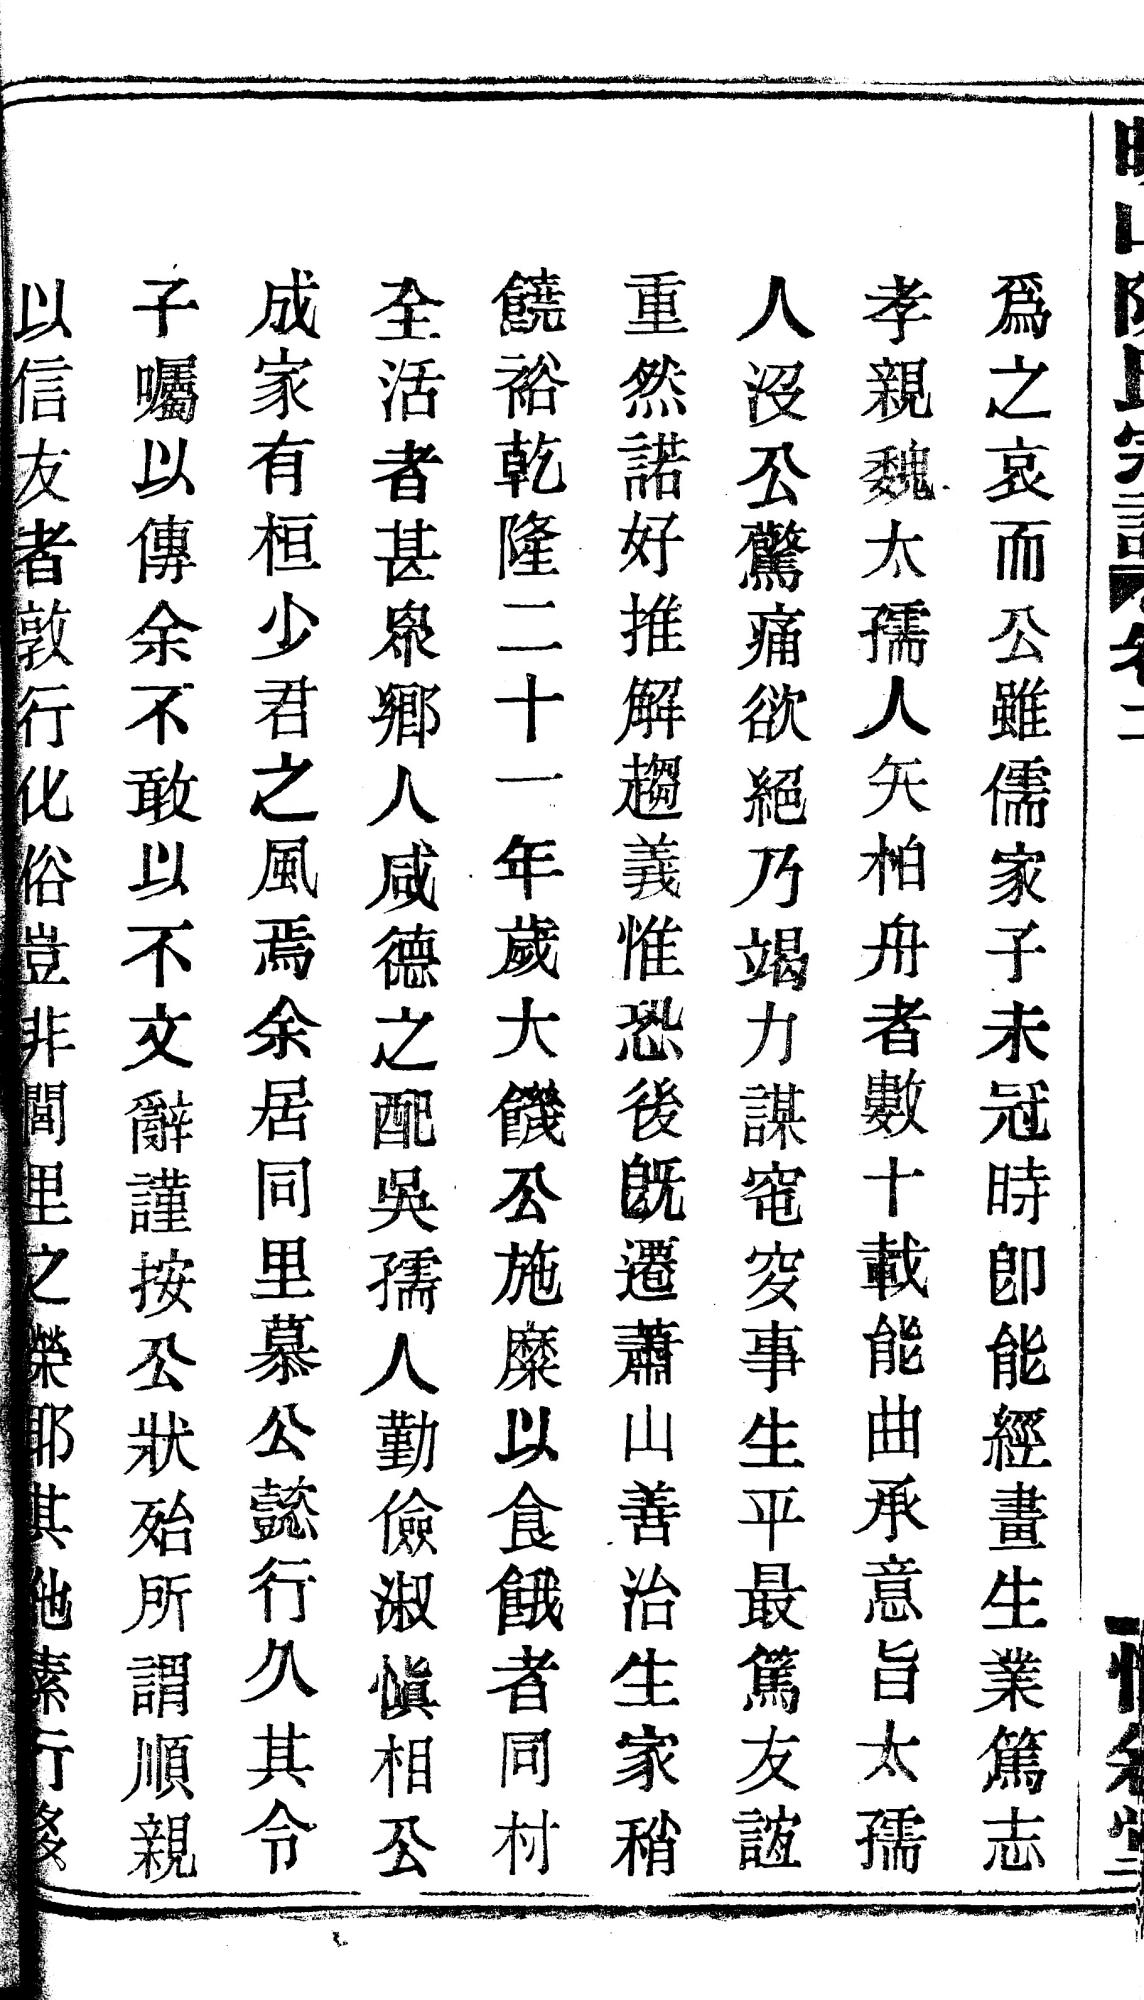 爲之哀而公雖儒家子未冠時卽能經畫生業篤志
孝親魏太孺人矢柏舟者數十載能曲承意旨太孺
人沒公驚痛欲絕乃竭力謀窀穸事生平最篤友誼
重然諾好推解趨義惟恐後旣遷蕭山善治生家稍
饒裕乾隆二十一年歲大饑公施糜以食餓者同村
全活者甚眾鄉人咸德之配吳孺人勤儉淑慎相公
成家有桓少君之風焉余居同里慕公懿行久其令
子囑以傳余不敢以不文辭謹按公狀殆所謂順親
以信友者敦行化俗豈非閭里之榮耶其他素行